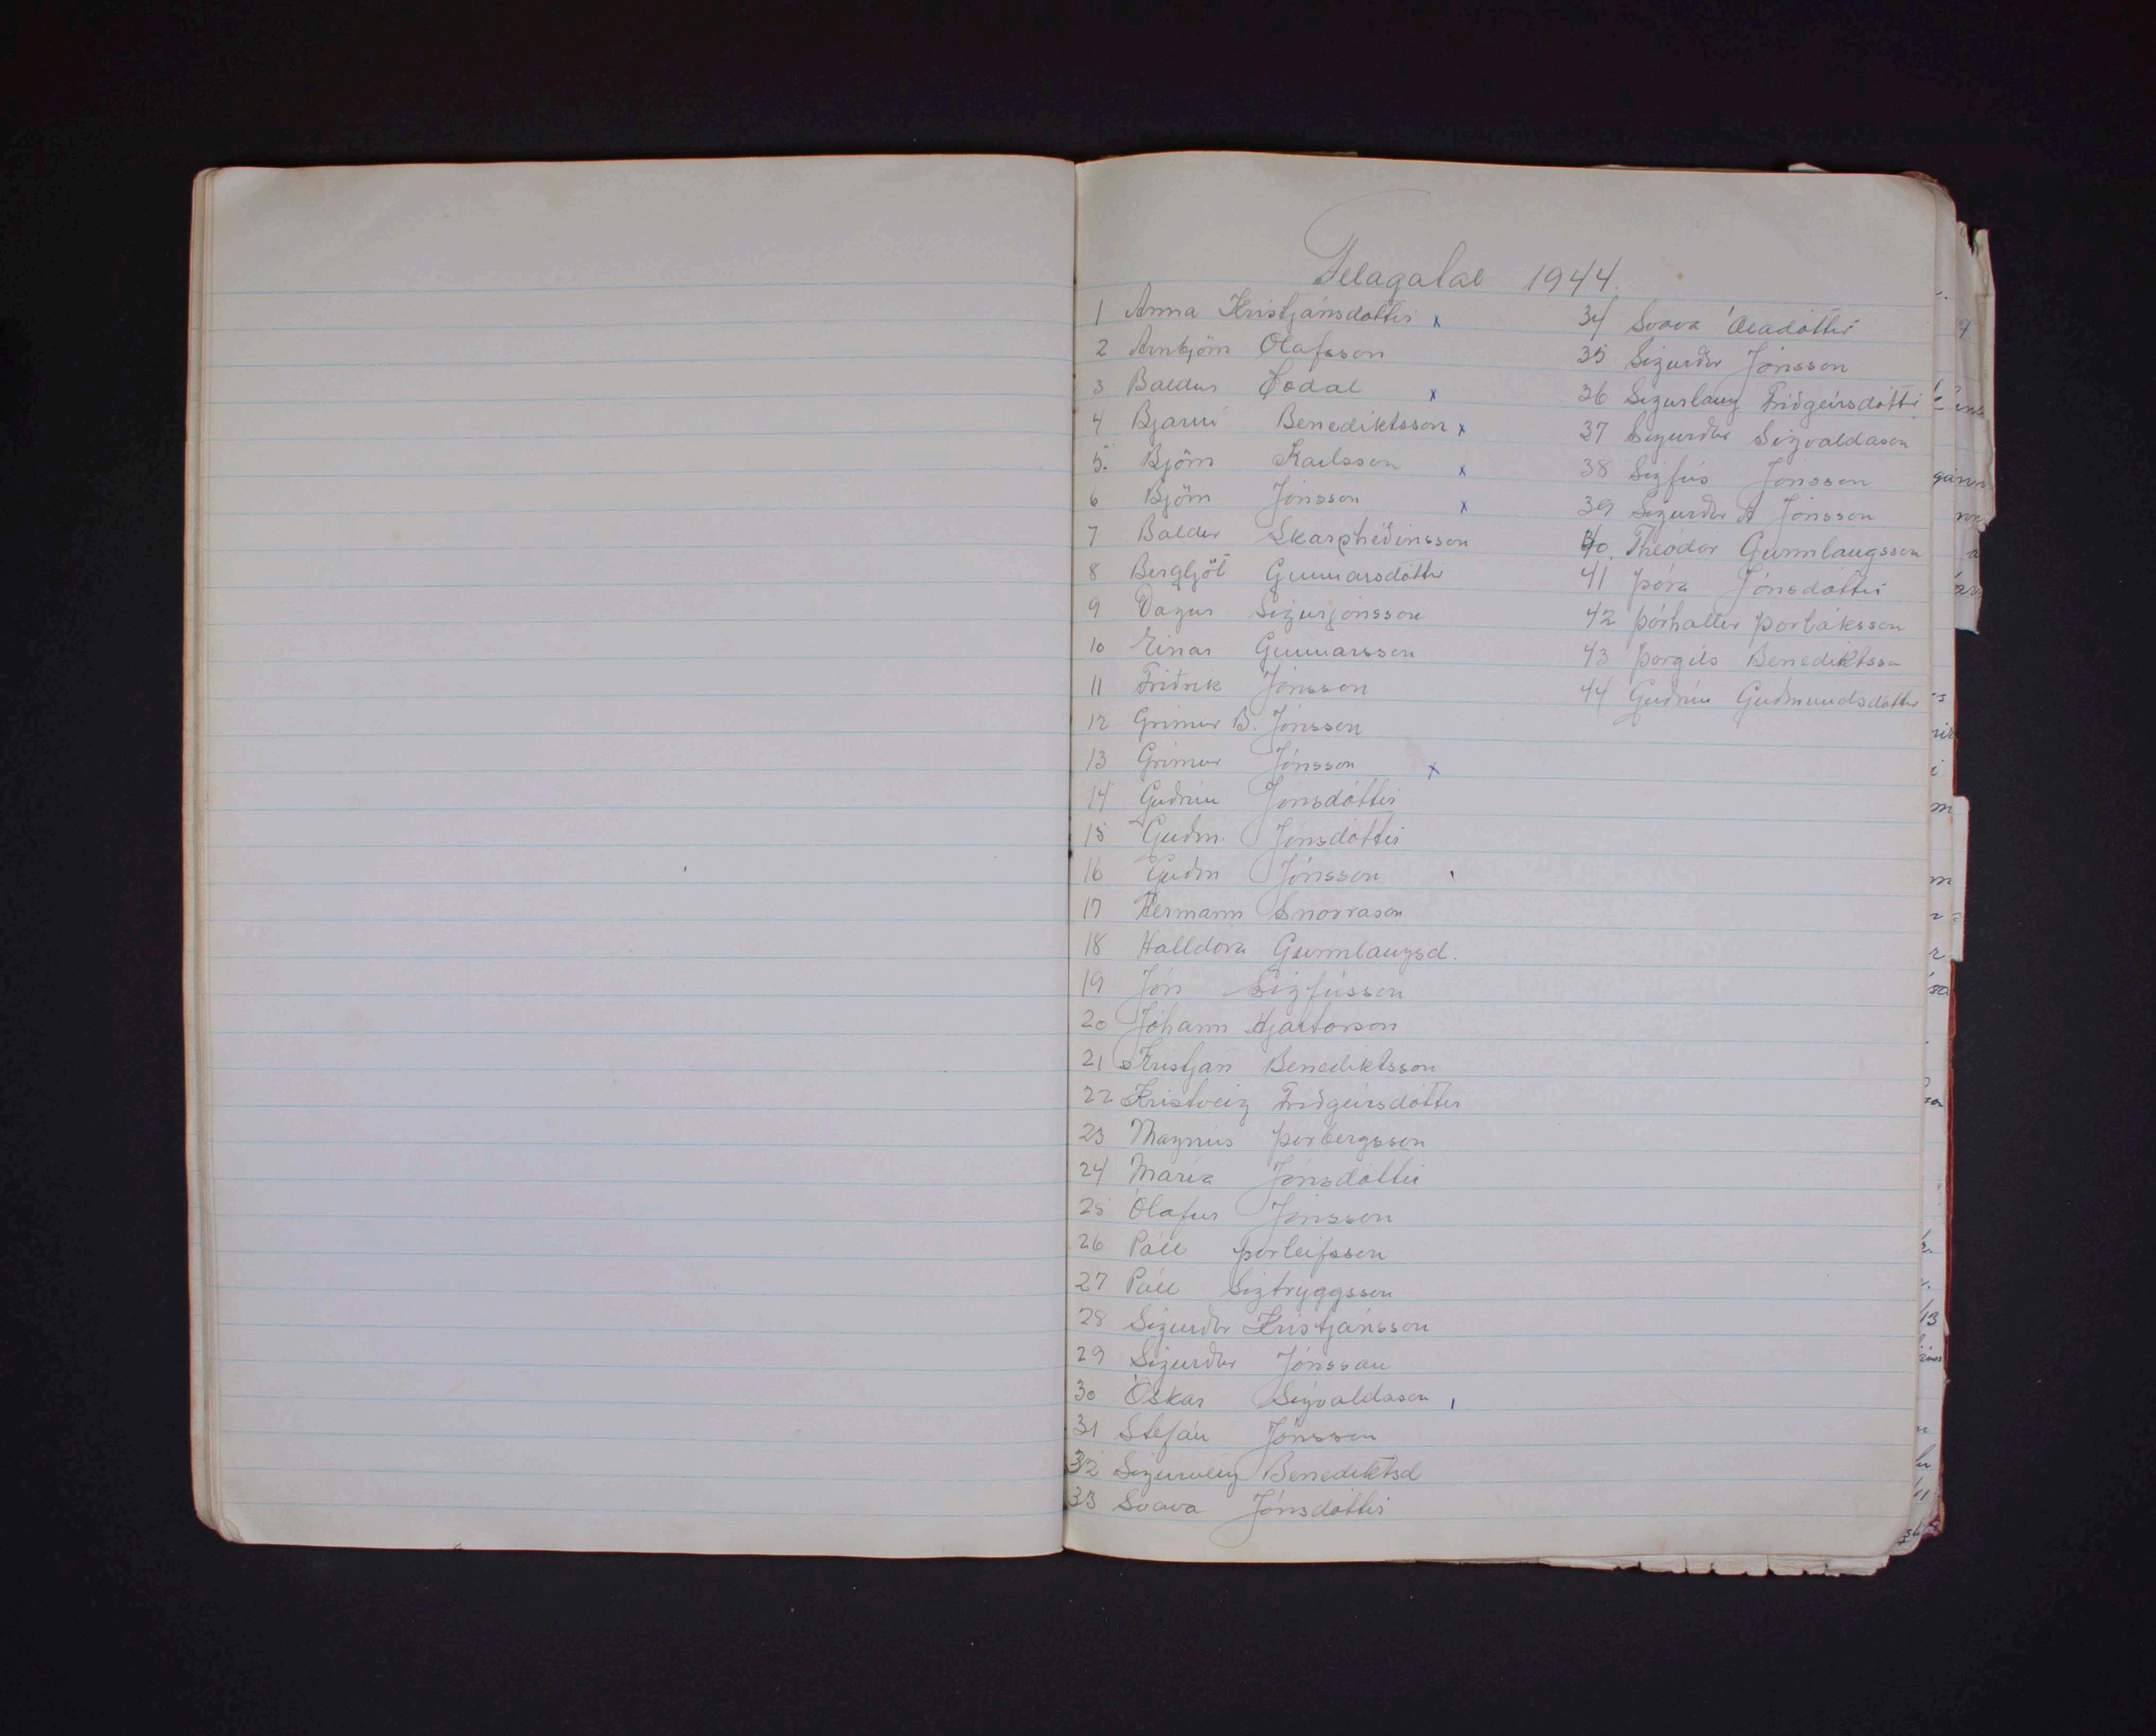 Félagatal 1944.
1 Anna Kristjánsdóttir x
2 Arnbjörn Ólafsson
3 Baldur Öxdal x
4 Bjarni Benediktsson x
5. Björn Karlsson x
6 Björn Jónsson x
7 Baldur Skarphéðinsson
8 Bergljót Gunnarsdóttir
9 Dagur Sigurjónsson
10 Einar Gunnarsson
11 Friðrik Jónsson
12 Grímur B. Jónsson
13 Grímur Jónsson x
14 Guðrún Jónsdóttir
15 Guðm. Jónsdóttir
16 Guðm Jónsson
17 Hermann Snorrason
18 Halldóra Gunnlaugsd.
19 Jón Sigfússon
20 Jóhann Hjartarson
21 Kristján Benediktsson
22 Kristveig Friðgeirsdóttir
23 Magnús Þorbergsson
24 María Jónsdóttir
25 Ólafur Jónsson
26 Páll Þorleifsson
27 Páll Sigtryggsson
28 Sigurður Kristjánsson
29 Sigurður Jónsson
30 Óskar Sigvaldason
31 Stefán Jónsson
32 Sigurveig Benediktsd
33 Svava Jónsdóttir
34 Svava Óladóttir
35 Sigurður Jónsson
36 Sigurlaug Friðgeirsdóttir
37 Sigurður Sigvaldason
38 Sigfús Jónsson
39 Sigurður A Jónsson
40. Theodór Gunnlaugsson
41 Þóra Jónsdóttir
42 Þórhallur Þorláksson
43 Þorgils Benediktsson
44 Guðrún Guðmundsdóttir